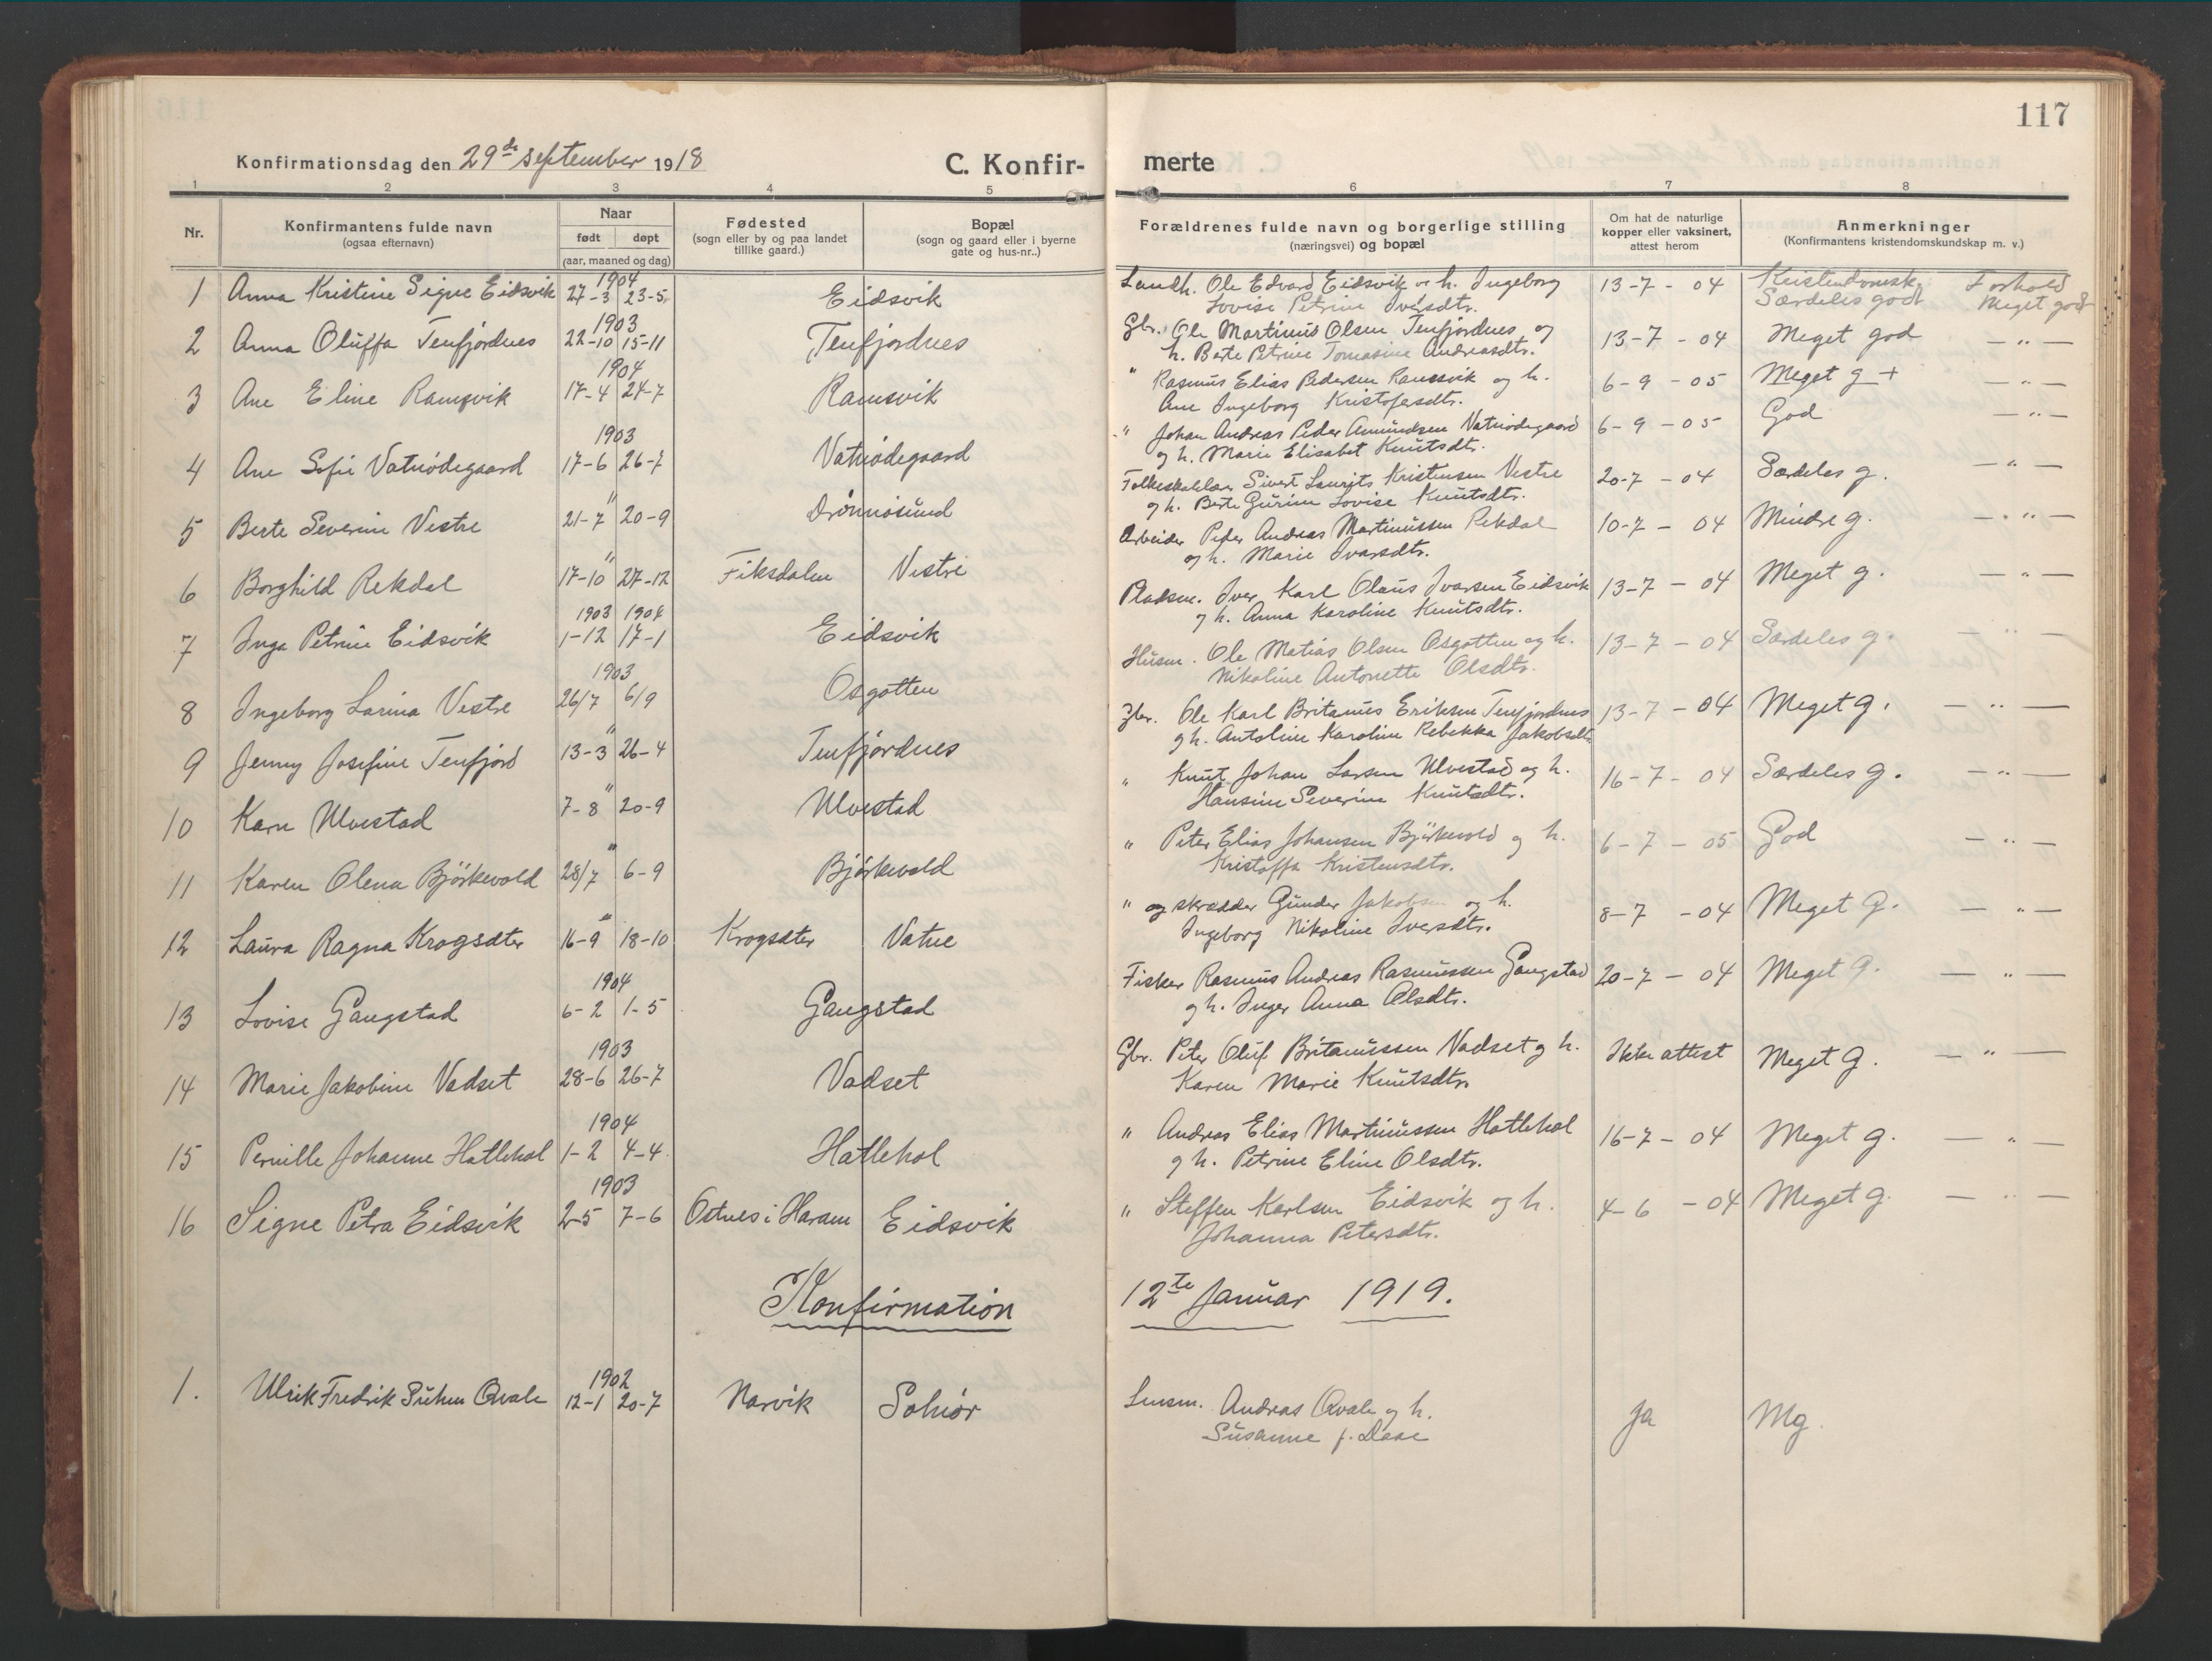 117
Konfirmationsdag den 29de september 1918
C. Konfir-
merte
1 2 3 4 5 6 7 8
Nr.
Konfirmantens fulde navn
(ogsaa efternavn)
Naar
født døpt
(aar, maaned og dag)
Fødested
(sogn eller by og paa landet
tillike gaard.)
Bopæl
(sogn og gaard eller i byerne
gate og hus-nr..)
Forældrenes fulde navn og borgerlige stilling
(næringsvei) og bopæl
Om hat de naturlige
kopper eller vaksinert,
attest herom
Anmerkninger
(Konfirmantens kristendomskundskap m. v.)
1904 Kristendomsk. Forhold
1 Anna Kristine Signe Eidsvik 27-3 23-5 Eidsvik Landh. Ole Edvard Eidsvik og h. Ingeborg 13-7-04 Særdeles godt Meget godt
Lovise Petrine Iversdtr.
1903
2 Anna Oluffa Tenfjordnes 22-10 15-11 Tenfjordnes Gbr. Ole Martinus Olsen Tenfjordnes og 13-7-04 Meget god — " —
h. Berte Petrine Tomasine Andreasdtr.
1904
3 Ane Eline Ramsvik 17-4 24-7 Ramsvik " Rasmus Elias Pedersen Ramsvik og h. 6-9-05 Meget g + — " —
Ane Ingeborg Kristofersdtr.
1903
4 Ane Sofie Vatnødegaard 17-6 26-7 Vatnødegaard " Johan Andreas Peder Amundsen Vatnødegaard 6-9-05 God — " —
og h. Marie Elisabet Knutsdtr.
"
5 Berte Severine Vestre 21-7 20-9 Drønnesund Folkeskolelærer Sivert Laurits Kristensen Vestre 20-7-04 Særdeles g. — " —
og h. Berte Gurine Lovise Knutsdtr.
"
6 Borghild Rekdal 17-10 27-12 Fiksdalen Vestre Arbeider Peder Andreas Martinussen Rekdal 10-7-04 Mindre g. — " —
og h. Marie Ivarsdtr.
1903 1904
7 Inga Petrine Eidsvik 1-12 17-1 Eidsvik Pladsm. Iver Karl Olaus Ivarsen Eidsvik 13-7-04 Meget g. — " —
og h. Anna Karoline Knutsdtr.
1903
8 Ingeborg Larina Vestre 26/7 6/9 Osgotten Husm. Ole Matias Olsen Osgotten og h. 13-7-04 Særdeles g. — " —
Nikoline Antonette Olsdtr.
"
9 Jenny Josefine Tenfjord 13-3 26-4 Tenfjordnes Gbr. Ole Karl Britanus Eriksen Tenfjordnes 13-7-04 Meget g. — " —
og h. Antoline Karoline Rebekka Jakobsdtr.
"
10 Karn Ulvestad 7-8 20-9 Ulvestad " Knut Johan Larsen Ulvestad og h. 16-7-04 Særdeles g. — " —
Hansine Severine Knutsdtr.
"
11 Karen Olena Björkevold 28/7 6-9 Björkevold " Peter Elias Johansen Björkevold og h. 6-7-05 God — " —
Kristoffa Kristensdtr.
"
12 Laura Ragna Krogsæter 16-9 18-10 Krogsæter Vatne " og skrædder Gunder Jakobsen og h. 8-7-04 Meget g. — " —
Ingeborg Nikoline Iversdtr.
1904
13 Lovise Gangstad 6-2 1-5 Gangstad Fisker Rasmus Andreas Rasmussen Gangstad 20-7-04 Meget g. — " —
og h. Inger Anna Olsdtr.
1903
14 Marie Jakobine Vadset 28-6 26-7 Vadset Gbr. Peter Oluf Britanussen Vadset og h. Ikke attest Meget g. — " —
Karen Marie Knutsdtr.
1904
15 Pernille Johanne Hatlehol 1-2 4-4 Hatlehol " Andreas Elias Martinussen Hatlehol 16-7-04 Meget g. — " —
og h. Petrine Eline Olsdtr.
1903
16 Signe Petra Eidsvik 2-5 7-6 Ostnes i Haram Eidsvik " Steffen Karlsen Eidsvik og h. 4-6-04 Meget g. — " —
Johanna Petersdtr.
Konfirmation 12te Januar 1919.
1902
1. Ulrik Fredrik Suhm Qvale 12-1 20-7 Narvik Solnör Lensm. Andreas Qvale og h. Ja Mg.
Susanne f. Daae